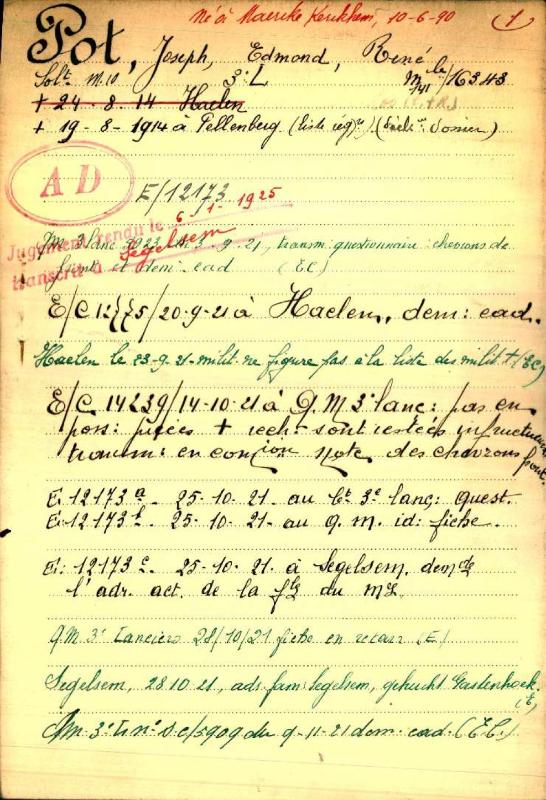 Né à Maercke Kerckhem, 10-6-90 (1)
Pot, Joseph, Edmond, René
Solt M.10 3e L mle/41/16343
+ 24-8-14 Haelen
+ 19-8-1914 à Pellenberg (liste régre) (décl: dossier)
AD
E/12173
Jugement rendu le 6-1-1925
transcrit à Segelsem
Q.M. 3 lanc 3923 3-9-21, transm. questionnaire chevrons de
front et dem. cad (EC)
E/C 12775/20-9-21 à Haelen, dem: cad.
Haelen le 23-9-21-milit. ne figure pas à la liste des milit + (EC)
E/C 14239/14-10-21 à Q.M 3e lanc: pas en
poss: pièces + rech: sont restées infructueuses
transm: en note des chevrons front.
E. 12173a - 25-10-21. au bt. 3e lanc: quest.
E. 12173b - 25-10-21. au q.m. id: fiche.
E. 12173c - 25-10-21. à Segelsem, demde
l'adr. act. de la flle du mre
Q.M 3e Lanciers 28/10/21 fiche en retour (E)
Segelsem, 28.10.21, adr. fam: Segelsem, gehucht Gastenhoek.
(E)
Q.M. 3e L no D.C/5909 du 9-11-21 dem. cad. (EC.)